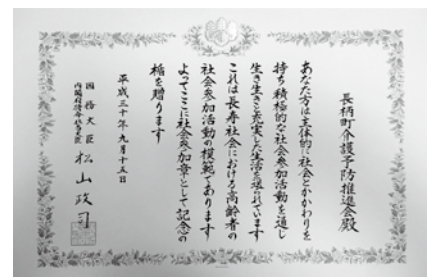 長柄町介護予防推進会殿
あなた方は主体的に社会とかかわりを
持ち積極的な社会参加活動を通し
生き生きと充実した生活を送られています
これは長寿社会における高齢者の
社会参加活動の模範であります
よってここに社会参加章として記念の
楯を贈ります
平成三十年九月十五日
国務大臣
内閣府特命担当大臣
松山政司